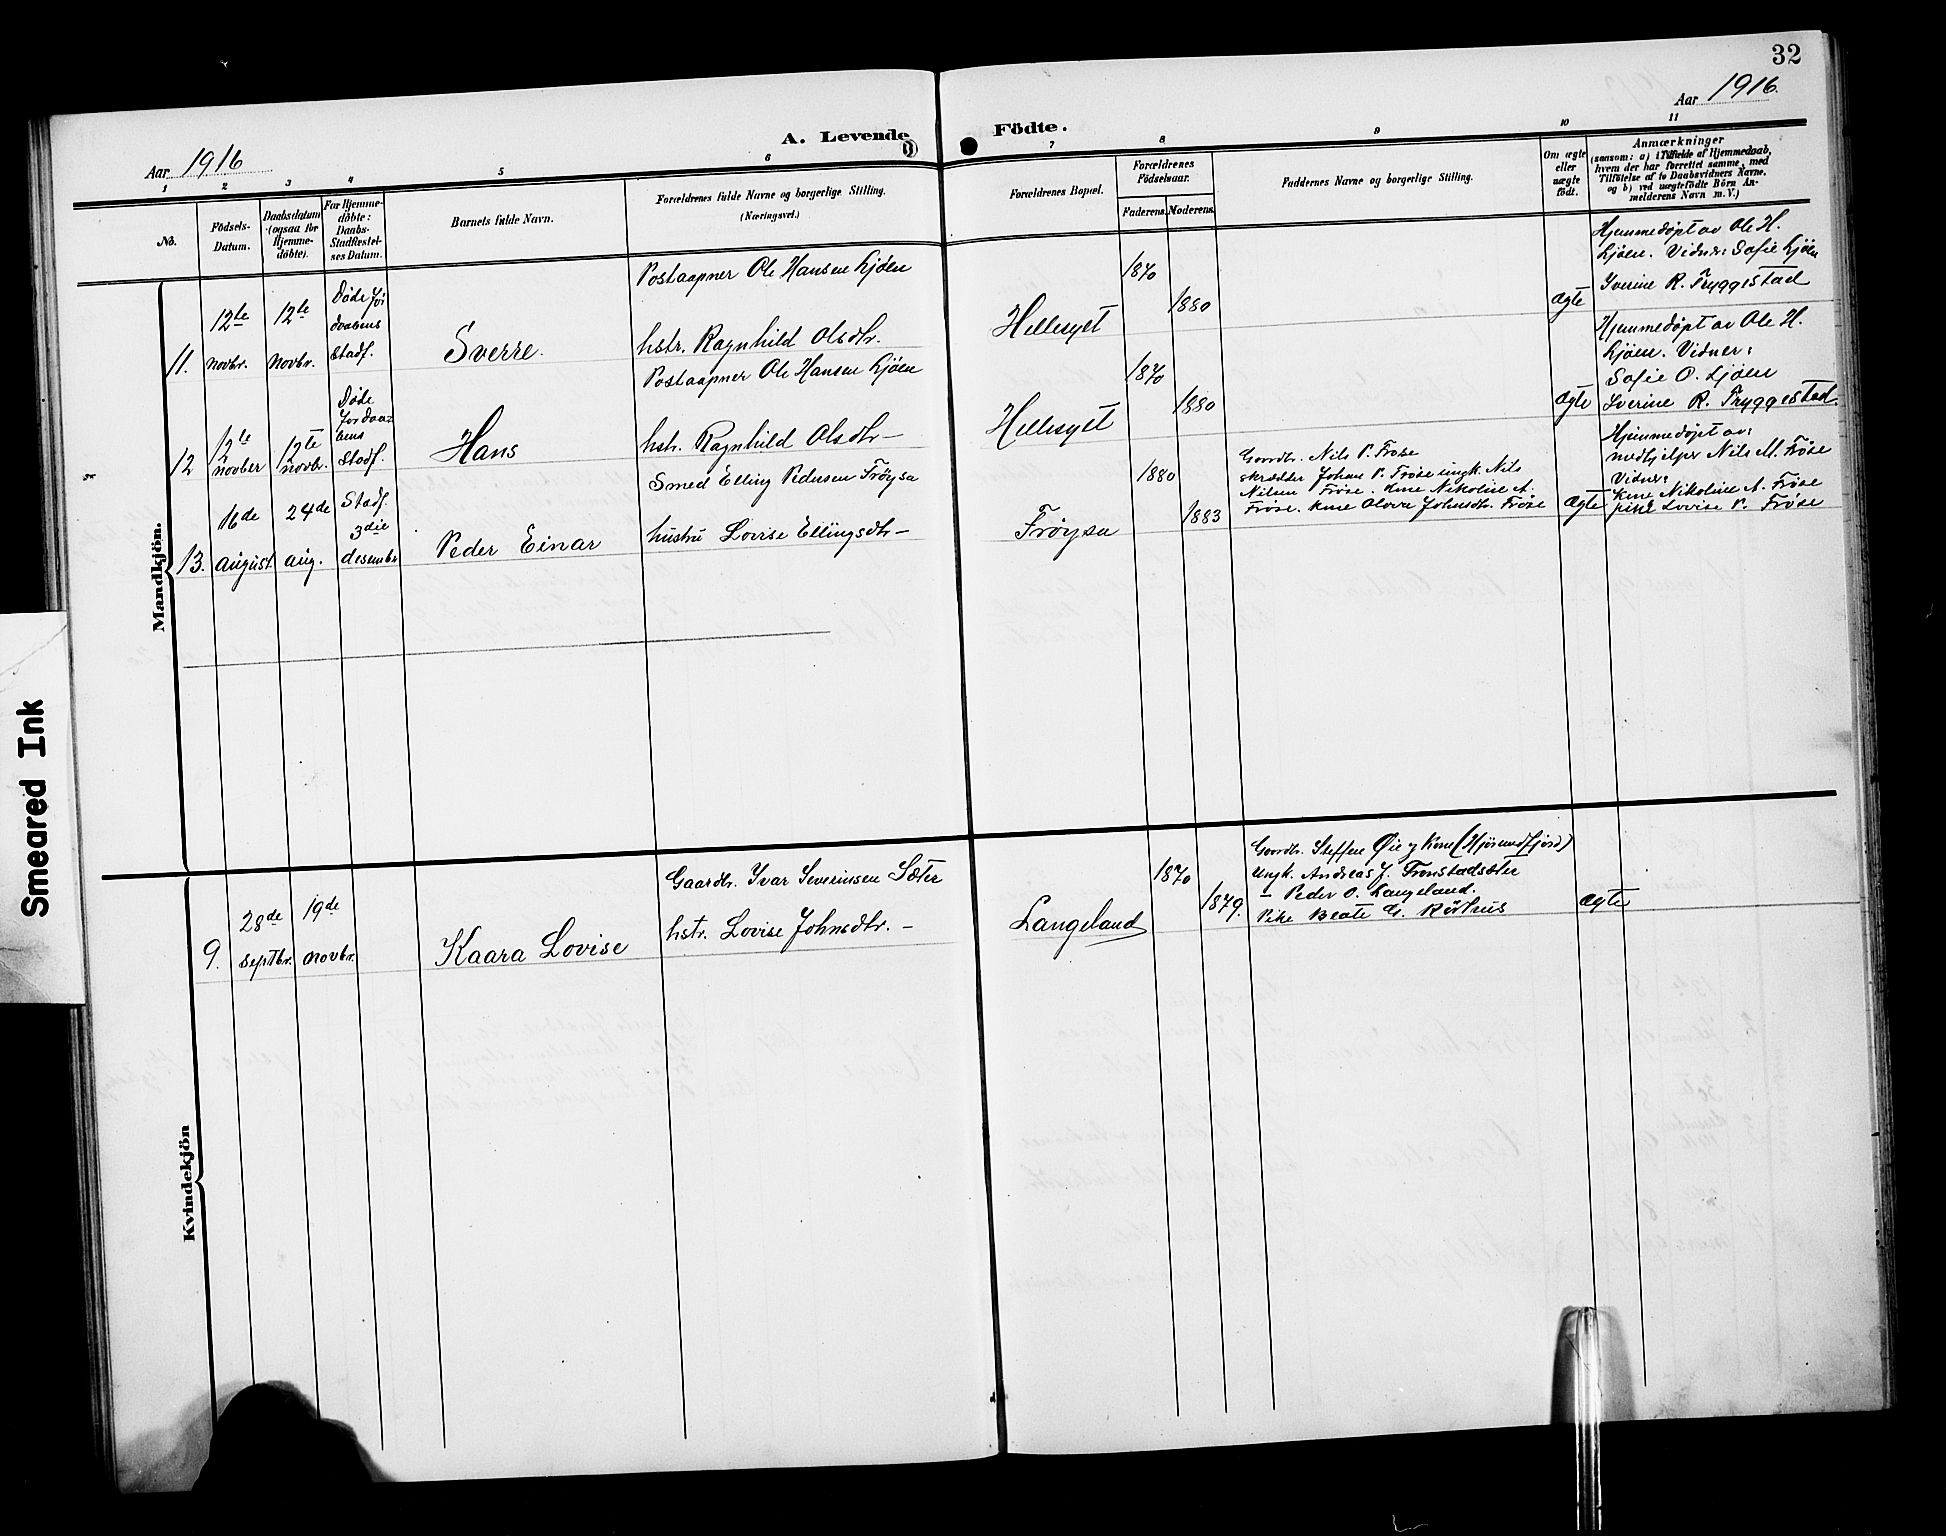 32
Aar 1916.
Aar 1916
A. Levende Födte.
1 2 3 4 5 6 7 8 9 10 11
No.
Födsels-
Datum.
Daabsdatum
(ogsaa for
Hjemme-
döbte).
For Hjemme-
döbte:
Daabs-
Stadfæstel-
ses Datum.
Barnets fulde Navn.
Forældrenes fulde Navne og borgerlige Stilling.
(Næringsvei.)
Forældrenes Bopæl.
Forældrenes
Födselsaar.
Faderens.
Moderens.
Faddernes Navne og borgerlige Stilling.
Om ægte
eller
uægte
födt.
Anmærkninger
(saasom: a) i Tilfælde af Hjemmedaab,
hvem der har forrettet samme, med
Tilföielse af to Daabsvidners Navne,
og b) ved uægtefödte Börn An-
melderens Navn m. V.)
Mandkjön.
11.
12te
novbr.
12te
novbr.
Døde før
daabens
stadf.
Sverre.
Postaapner Ole Hansen Ljøen
hstr. Ragnhild Olsdtr.
Hellesylt
1870
1880
Ægte
Hjemmedøpt av Ole H.
Ljøen. Vidner: Sofie Ljøen
Iverine R. Tryggestad
12
12te
novber
12te
novbr.
Døde
før daa-
bens
stadf.
Hans
Postaapner Ole Hansen Ljøen
hstr. Ragnhild Olsdtr –
Hellesylt
1870
1880
Ægte
Hjemmedøpt av Ole H.
Ljøen. Vidner:
Sofie O. Ljøen
Iverine R. Tryggestad.
13.
16de
august
24de
aug.
Stadf.
3die
desembr
Peder Einar
Smed Elling Pedersen Frøysa
hustru Lovise Ellingsdtr –
Frøysa
1880
1883
Gaardbr. Nils P. Frøse
skrædder Johan P. Frøse ungk. Nils
Nilsen Frøse. kone Nikoline A.
Frøse. kone Olova Johnsdtr. Frøse
Ægte
Hjemmedøpt av:
medhjelper Nils M. Frøse
Vidner:
kone Nikoline A. Frøse
pike Lovise P. Frøse
Kvindekjön
9.
28de
septbr.
19de
novbr.
Kaara Lovise
Gaardbr. Ivar Severinsen Sæter
hstr. Lovise Johnsdtr. –
Langeland
1870
1879.
Gaardbr. Steffen Øie og kone (Hjørundfjord)
ungk. Andreas J. Tronstadsæter
– Peder O. Langeland.
Pike Beate G. Rørhus
Ægte
Smeared Ink